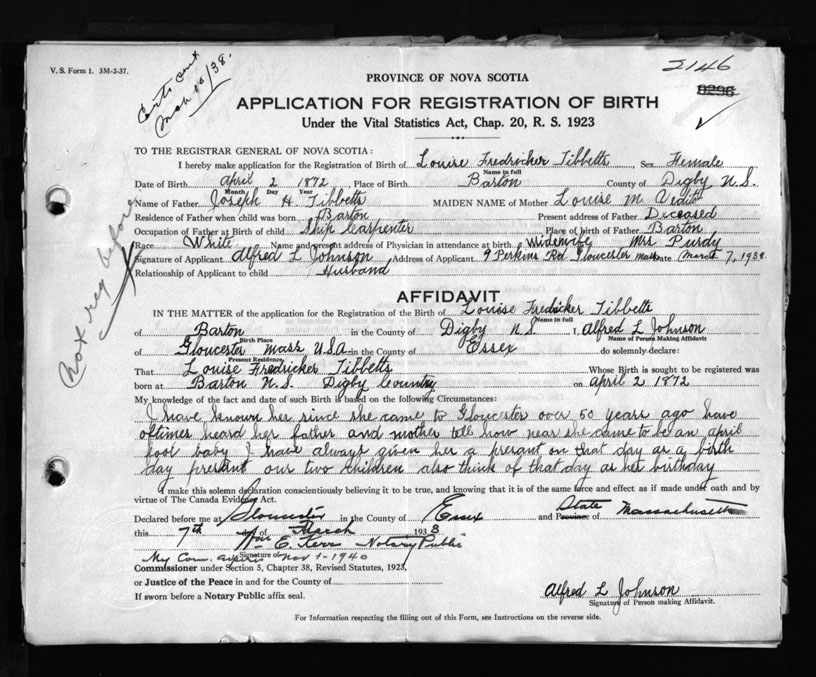 V. S. Form 1. 3M-2-37.
Certs sent
Mch 10/38.
2146
8296
✓
PROVINCE OF NOVA SCOTIA
APPLICATION FOR REGISTRATION OF BIRTH
Under the Vital Statistics Act, Chap. 20, R. S. 1923
TO THE REGISTRAR GENERAL OF NOVA SCOTIA:
I hereby make application for the Registration of Birth of Louise Fredricker Tibbetts, Sex Female
Name in full
Date of Birth april 2 1872 Place of Birth Barton County of Digby N.S.
Month Day Year
Name of Father Joseph H. Tibbetts MAIDEN NAME of Mother Louise M.
Residence of Father when child was born Barton Present address of Father Diceased
Occupation of Father at Birth of child Ship Carpenter Place of birth of Father Barton
Race White Name and present address of Physician in attendance at birth Widenwife Mrs Purdy
Signature of Applicant Alfred L Johnson Address of Applicant 9 Perkins Rd Gloucester Mass Date March 7, 1938
Relationship of Applicant to child Husband
Not reg before
AFFIDAVIT
IN THE MATTER of the application for the Registration of the Birth of Louise Fredricker Tibbetts
Name in full
of Barton in the County of Digby N S I, Alfred L Johnson
Birth Place Name of Person Making Affidavit
of Gloucester Mass USA in the County of Essex do solemnly declare:
Present Residence
That Louise Fredricker Tibbetts Whose Birth is sought to be registered was
born at Barton N.S. Digby Country on april 2 1872
My knowledge of the fact and date of such Birth is based on the following Circumstances:
I have known her since she came to Gloucester over 50 years ago have
oftimes heard her father and mother tell how near she came to be an april
fool baby I have always given her a presant on that day as a birth
day presant our two children also think of that day as her birthday
I make this solemn declaration conscientiously believing it to be true, and knowing that it is of the same force and effect as if made under oath and by
virtue of The Canada Evidence Act.
Declared before me at Gloucester in the County of Essex and Province of State Massachusetts
this 7th day of March 1938
Wm E. Kerr Notary Public
Signature of
My Com. expires Nov 1-1940
Commissioner under Section 5, Chapter 38, Revised Statutes, 1923,
or Justice of the Peace in and for the County of
If sworn before a Notary Public affix seal.
Alfred L Johnson
Signature of Person making Affidavit.
For Information respecting the filling out of this Form, see Instructions on the reverse side.